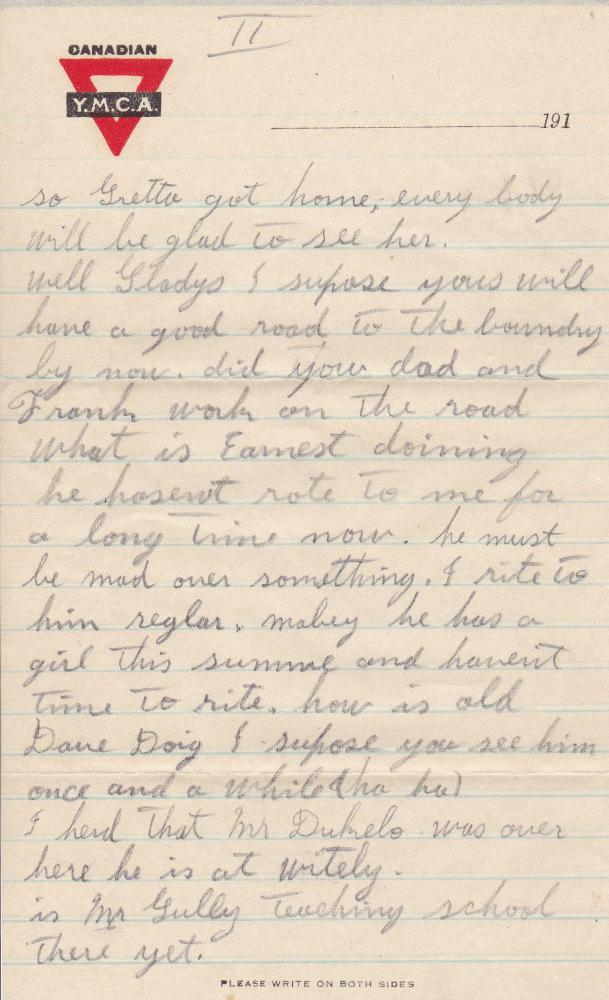 II
CANADIAN
Y.M.C.A.
191
so Gretta got home, every body
will be glad to see her.
well Gladys I supose yous will
have a good road to the boundry
by now. did your dad and
Frank work on the road
what is Earnest doining
he hasent rote to me for
a long time now. he must
be mad over something. I rite to
him reglar. mabey he has a
girl this summe and havent
time to rite. how is old
Dave Doig I supose you see him
once and a while (ha ha)
I herd that Mr was over
here he is at Witely.
is Mr Gully teaching school
there yet.
PLEASE WRITE ON BOTH SIDES